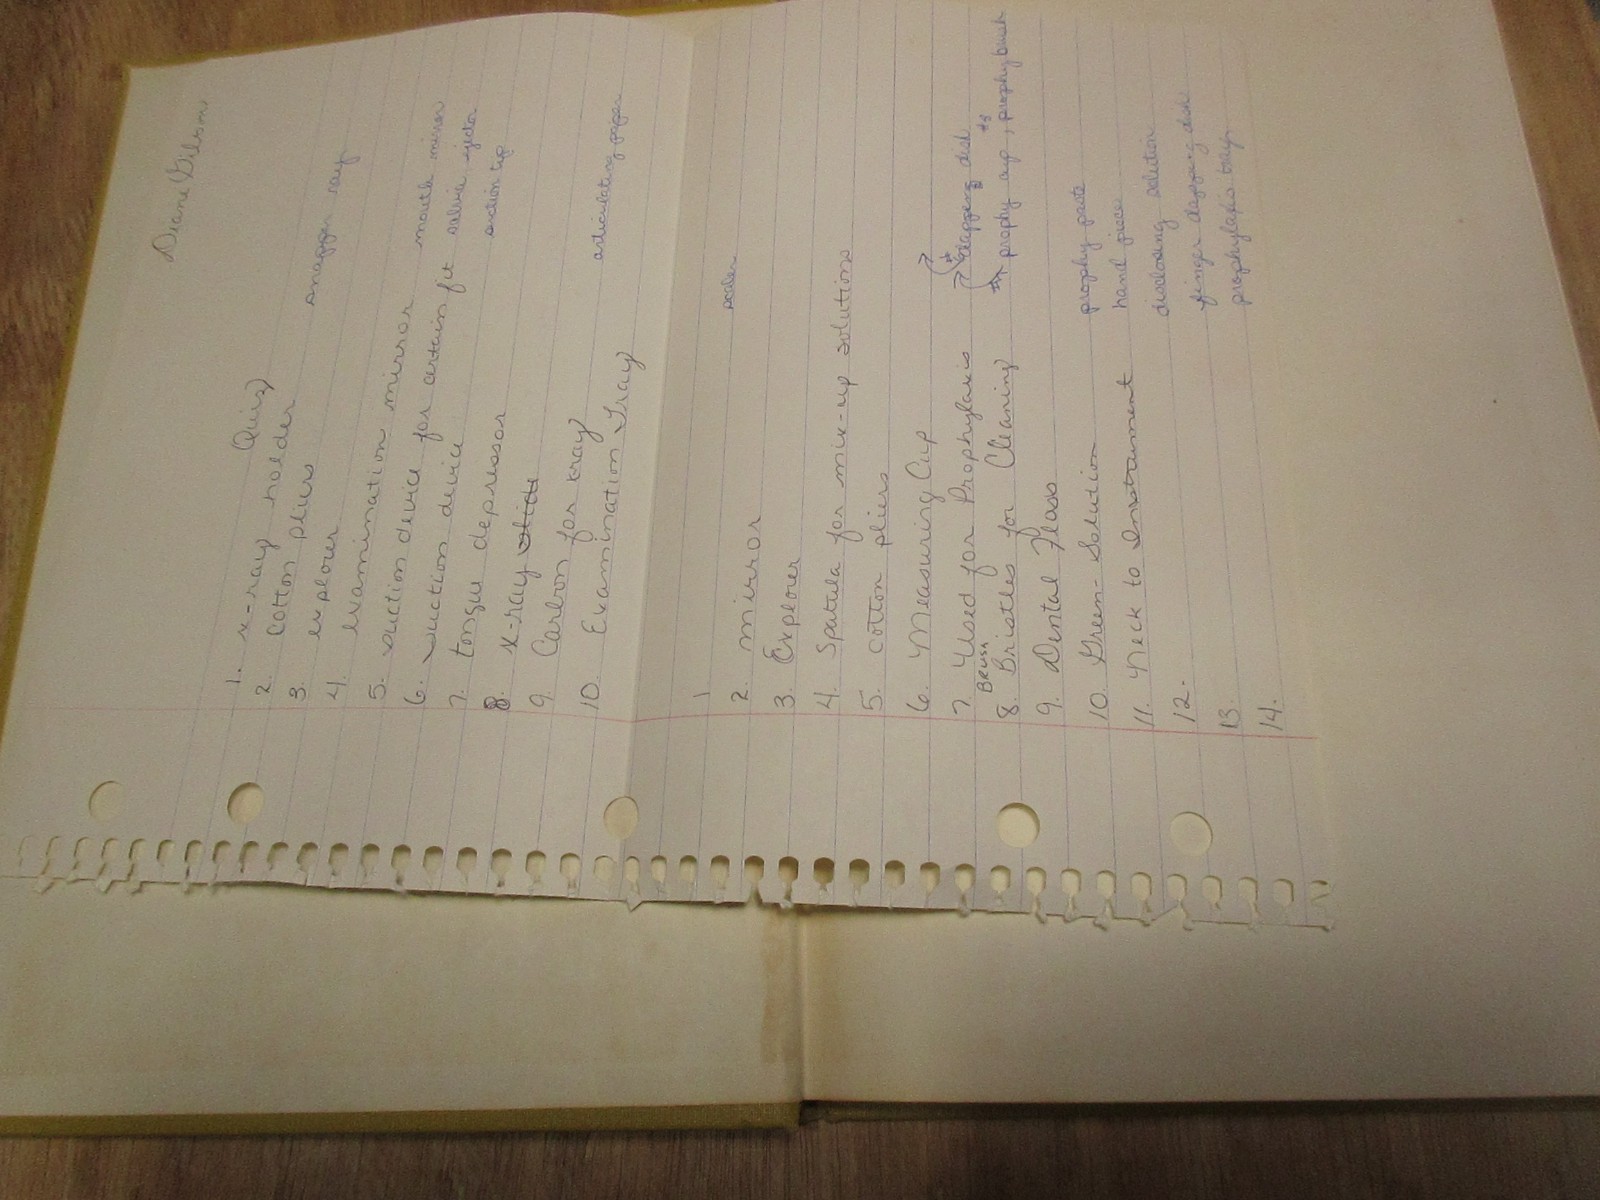 Diane Gilson
Quiz
1. x-ray holder
2. cotton pliers snapper ray
3. explorer
4. examination mirror mouth mirror
5. suction device for certain fit salvia ejector
6. suction device suction tip
7. tongue depressor
8. x-ray
9. Carbon for xray articulating paper
10. Examination Tray
1 scaler
2. mirror
3. Explorer
4. Spatula for mix-up solutions
5. cotton pliers
6. Measuring Cup
7. Used for Prophylaxis dappening dish
Brush
8. Bristles for Cleaning prophy cup, prophy brush
9. Dental Floss
10. Green-Solution prophy paste
11. Neck to Instrument hand piece
12. disclosing solution
13. finger dappening dish
14. prophylaxis tray